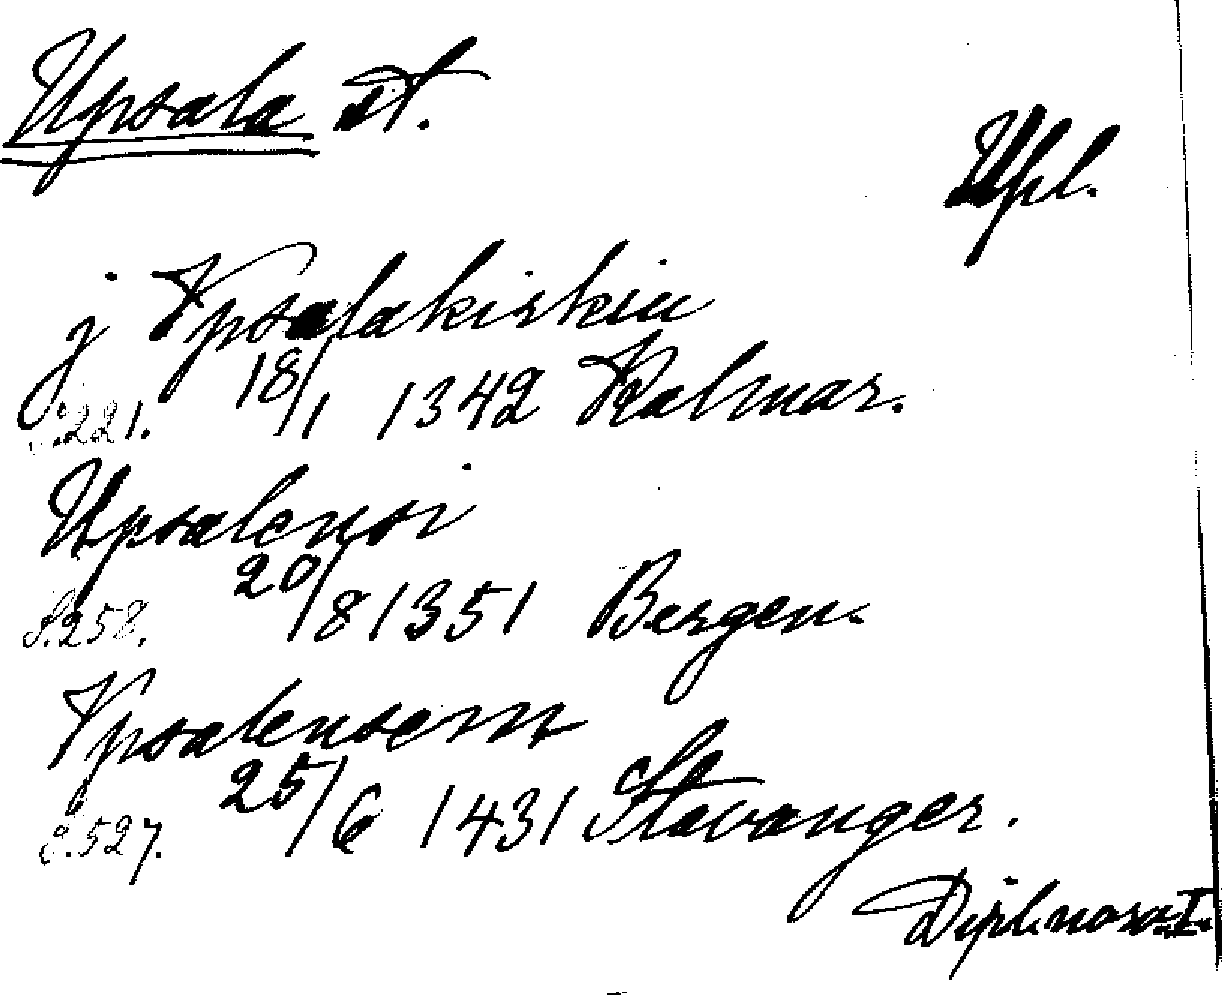 Upsala st.
Upl.
j Vpsalakirkiu
s. 221. 18/1 1342 Kalmar.
Upsalensi
S. 258. 20/8 1351 Bergen.
Vpsalensem
s. 527. 25/6 1431 Stavanger.
Dipl. norv. I.